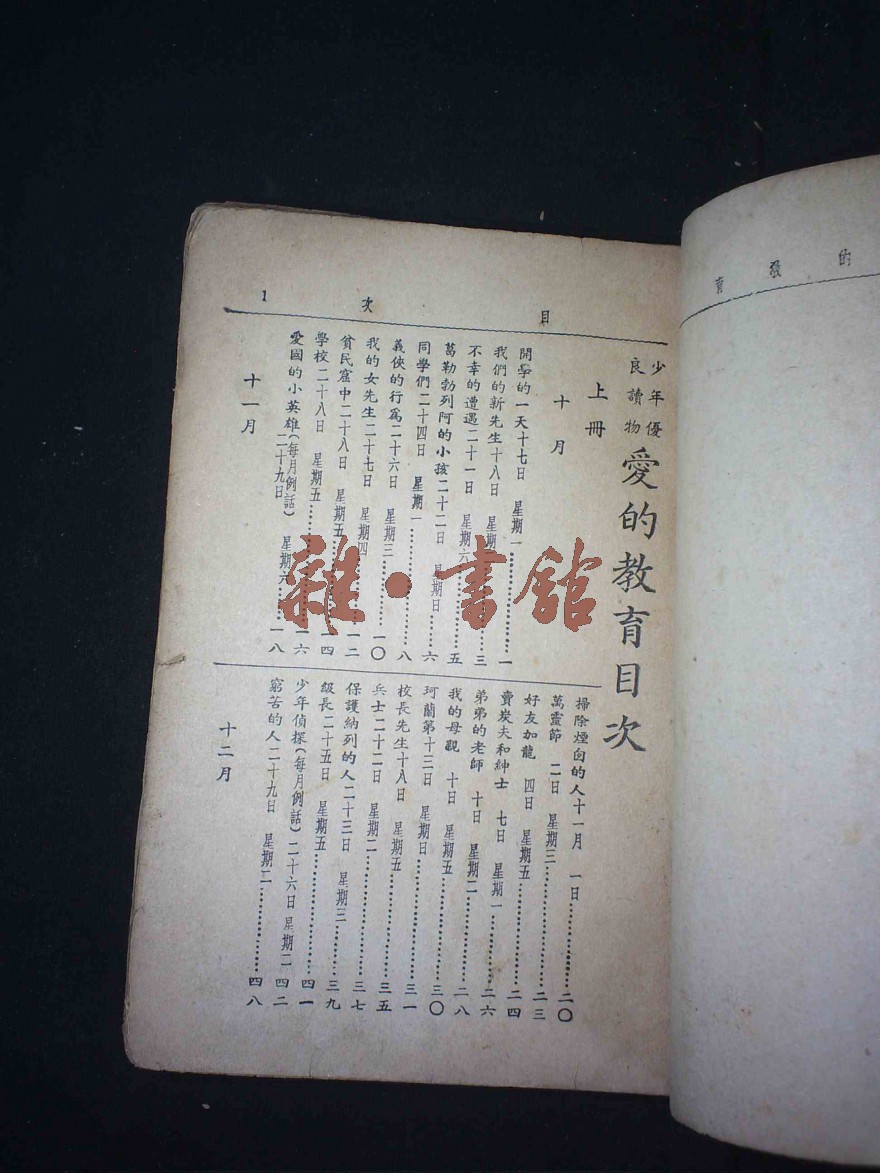 目次 1
少年優
良讀物
愛的教育目次
上冊
十月
開學的一天十七日 星期一…………一
我們的新先生十八日 星期…………三
不幸的遭遇二十一日 星期六…………五
葛勒勃列阿的小孩二十二日 星期日……六
同學們二十四日 星期一…………八
義俠的行為二十六日 星期三…………一〇
我的女先生二十七日 星期四…………一二
貧民窟中二十八日 星期五…………一四
學校二十八日 星期五…………一六
愛國的小英雄(每月例話)二十九日 星期六……一八
十一月
掃除煙囪的人十一月 一日…………二〇
萬靈節 二日 星期三…………二三
好友加龍 四日 星期五…………二四
賣炭夫和紳士 七日 星期一…………二六
弟弟的老師 十日 星期二…………二八
我的母親 十日 星期五…………三〇
珂蘭第十三日 星期日…………三一
校長先生十八日 星期五…………三五
兵士二十二日 星期二…………三七
保護納列的人二十三日 星期三……三九
級長二十五日 星期五…………四一
少年偵探(每月例話)二十六日 星期二 四二
窮苦的人二十九日 星期二…………四八
十二月
的 教 育
雜·書館